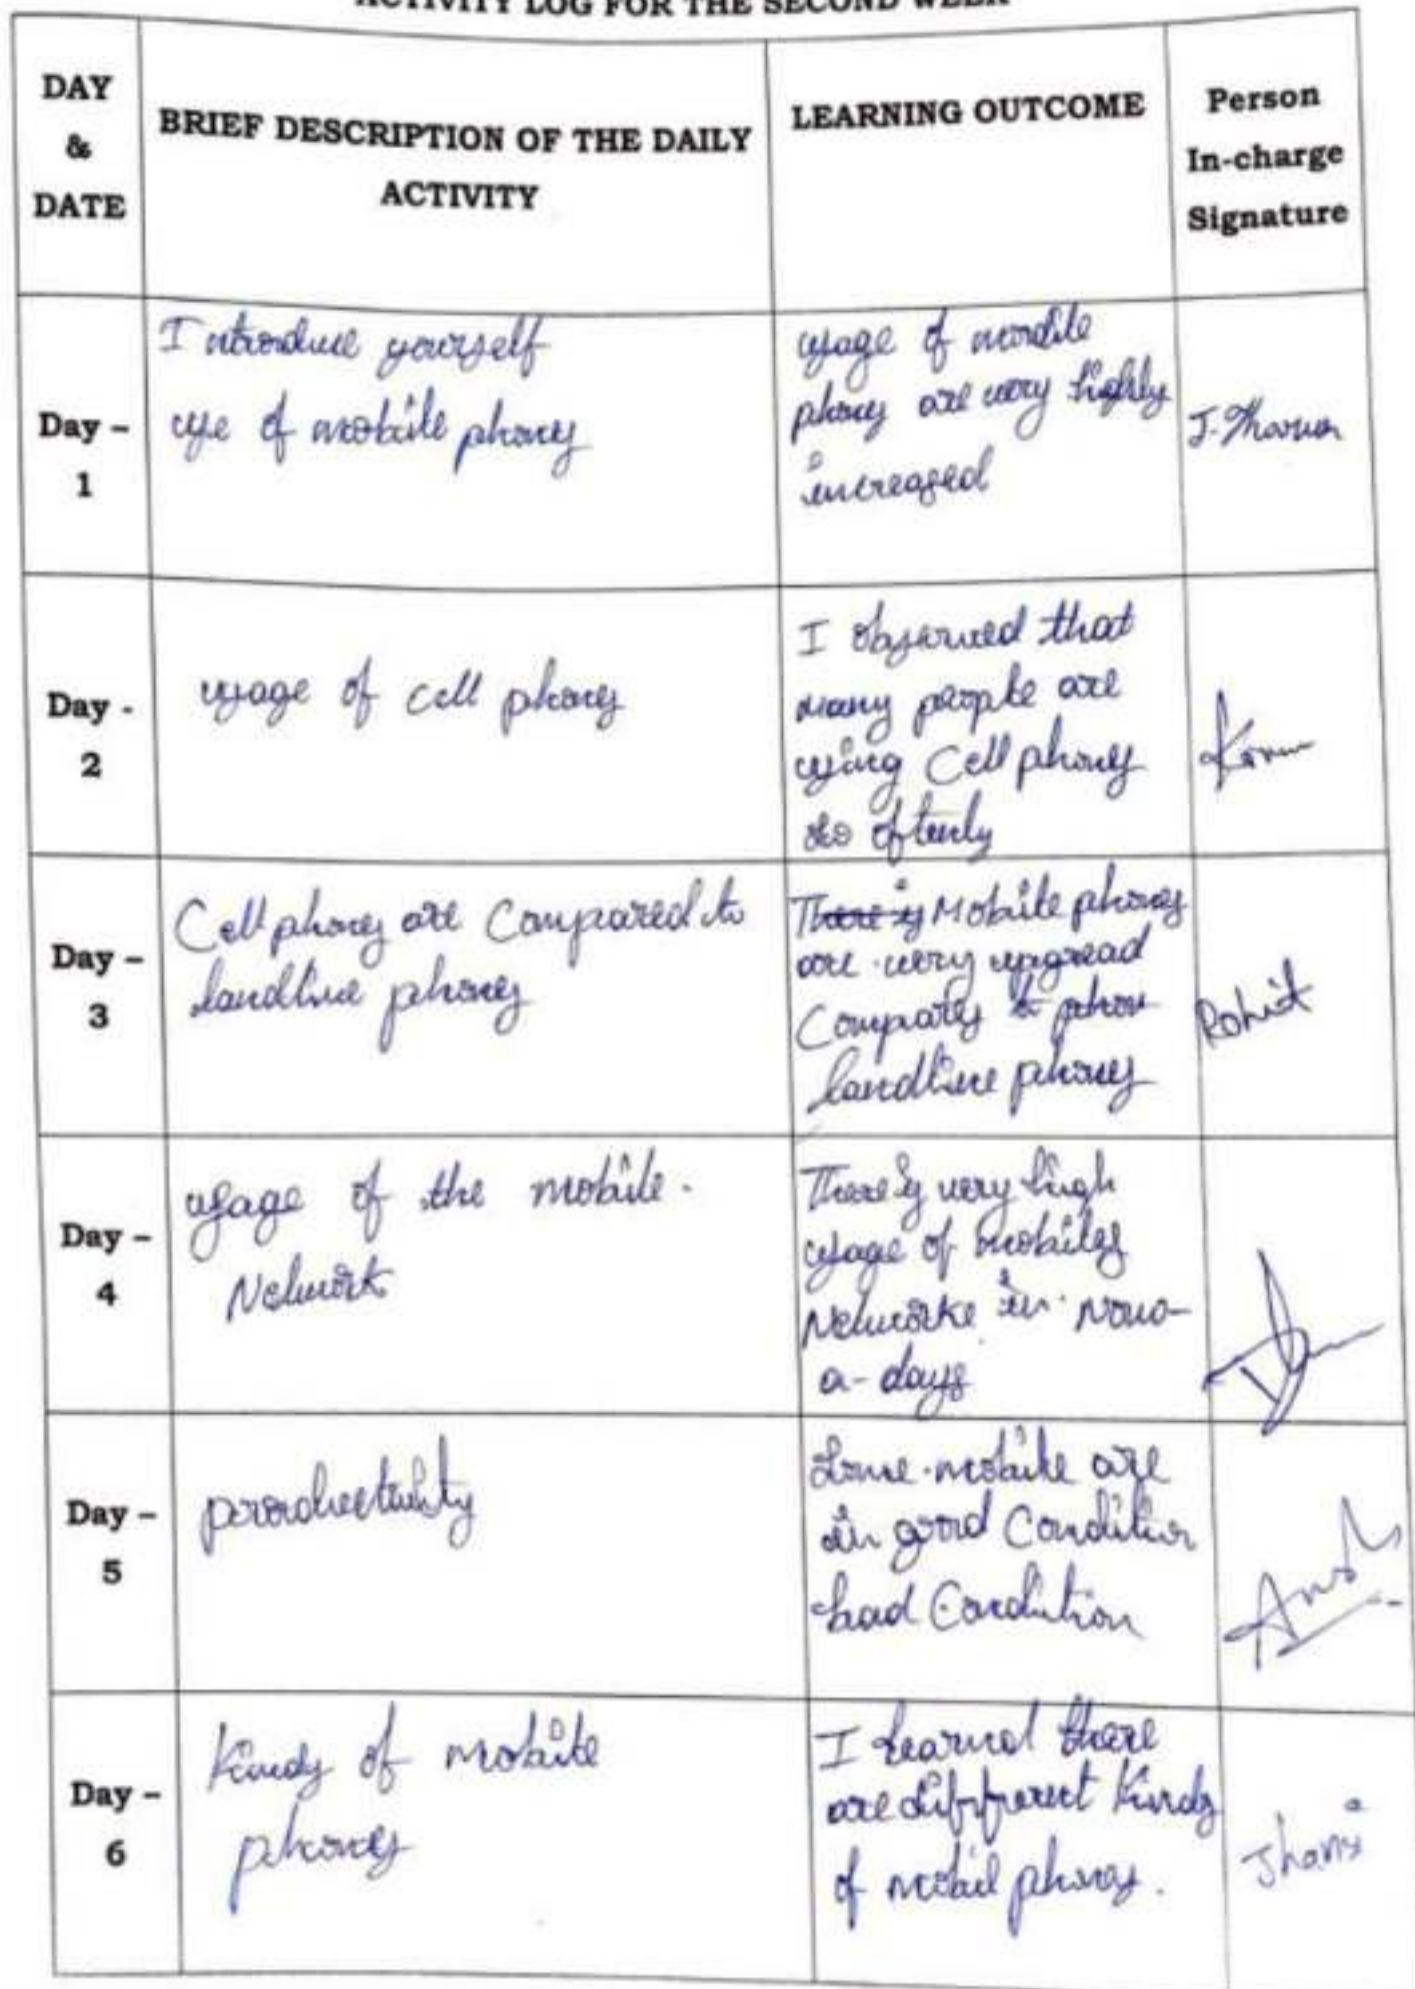 ACTIVITY LOG FOR THE SECOND WEEK
DAY
&
DATE
BRIEF DESCRIPTION OF THE DAILY
ACTIVITY
LEARNING OUTCOME
Person
In-charge
Signature
Day –
1
Introduce yourself
use of mobile phones
usage of mobile
phones are very highly
increased
Day -
2
usage of cell phones
I observed that
many people are
using Cell phones
so oftenly
Day –
3
Cell phones are Compared to
landline phones
There is Mobile phones
are very
landline phones
Rohit
Day –
4
usage of the mobile.
Network
There is very high
usage of mobiles
Networke in now-
a-days
Day –
5
Some mobile are
in good Condition
bad Condition
Day –
6
Kinds of mobile
phones
I learned there
are diffferent Kinds
of mobil phones.
Jhansi